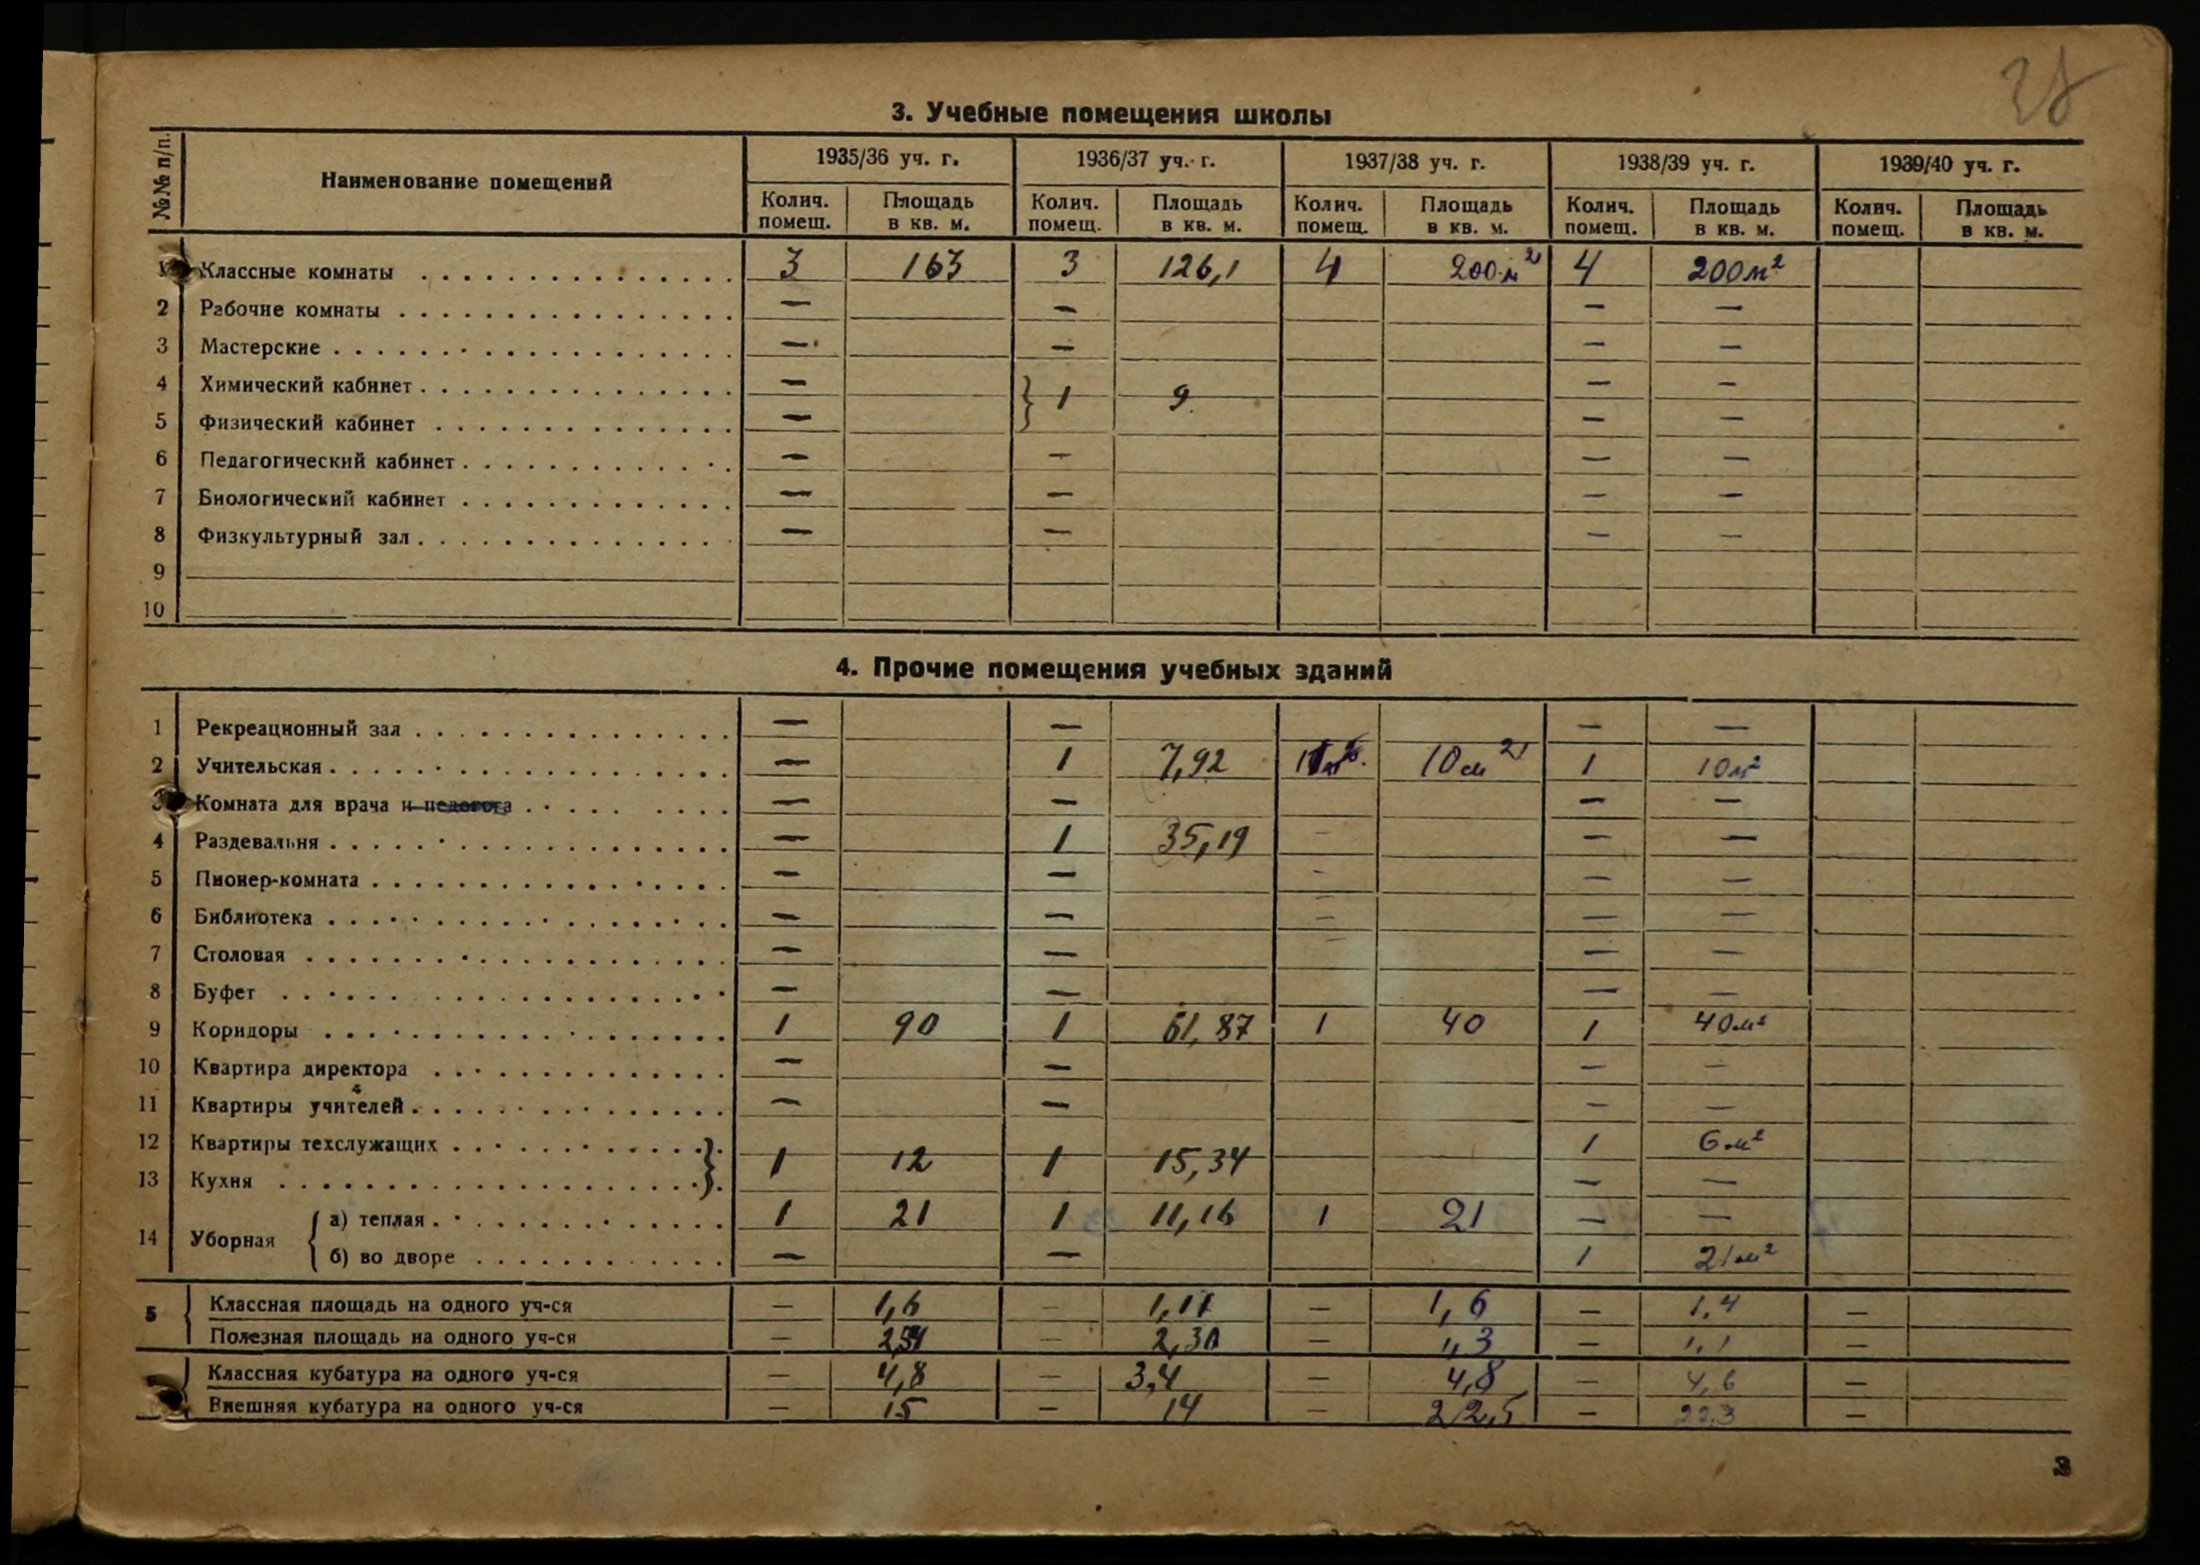 38
3. Учебные помещения школы
№№ п/п. Наименование помещений 1935/36 уч. г. 1936/37 уч. г. 1937/38 уч. г. 1938/39 уч. г. 1939/40 уч. г.
Колич. помещ. Площадь в кв. м. Колич. помещ. Площадь в кв. м. Колич. помещ. Площадь в кв. м. Колич. помещ. Площадь в кв. м. Колич. помещ. Площадь в кв. м.
1 Классные комнаты 3 163 3 126,1 4 200 м² 4 200 м²
2 Рабочие комнаты — — — —
3 Мастерские — — — —
4 Химический кабинет — } 1 9 — —
5 Физический кабинет — — —
6 Педагогический кабинет — — — —
7 Биологический кабинет — — — —
8 Физкультурный зал — — — —
9
10
4. Прочие помещения учебных зданий
1 Рекреационный зал — — — —
2 Учительская — 1 7,92 10 м² 1 10 м²
3 Комната для врача и педолога — — — —
4 Раздевальня — 1 35,19 - — —
5 Пионер-комната — — - — —
6 Библиотека — — - — —
7 Столовая — — - — —
8 Буфет — — — —
9 Коридоры 1 90 1 61,87 1 40 1 40 м²
10 Квартира директора — — — —
11 Квартиры учителей — — — —
12 Квартиры техслужащих } 1 12 1 15,34 1 6 м²
13 Кухня — —
14 Уборная { а) теплая 1 21 1 11,16 1 21 — —
б) во дворе — — 1 21 м²
5 { Классная площадь на одного уч-ся — 1,6 — 1,11 — 1,6 — 1,4 —
Полезная площадь на одного уч-ся — — — 1,3 — 1,1 —
Классная кубатура на одного уч-ся — 4,8 — 3,4 — 4,8 — 4,6 —
Внешняя кубатура на одного уч-ся — 15 — 14 — 22,5 — 22,3 —
3